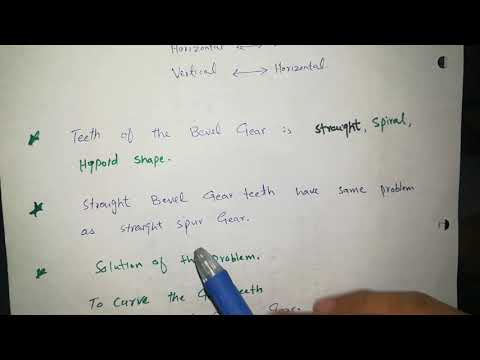 Horizontal ⟷
Vertical ⟷ Horizontal
★ Teeth of the Bevel Gear is straight, Spiral,
Hypoid shape.
★ Straight Bevel Gear teeth have same problem
as straight spur Gear.
★ Solution of the Problem.
To Curve the teeth